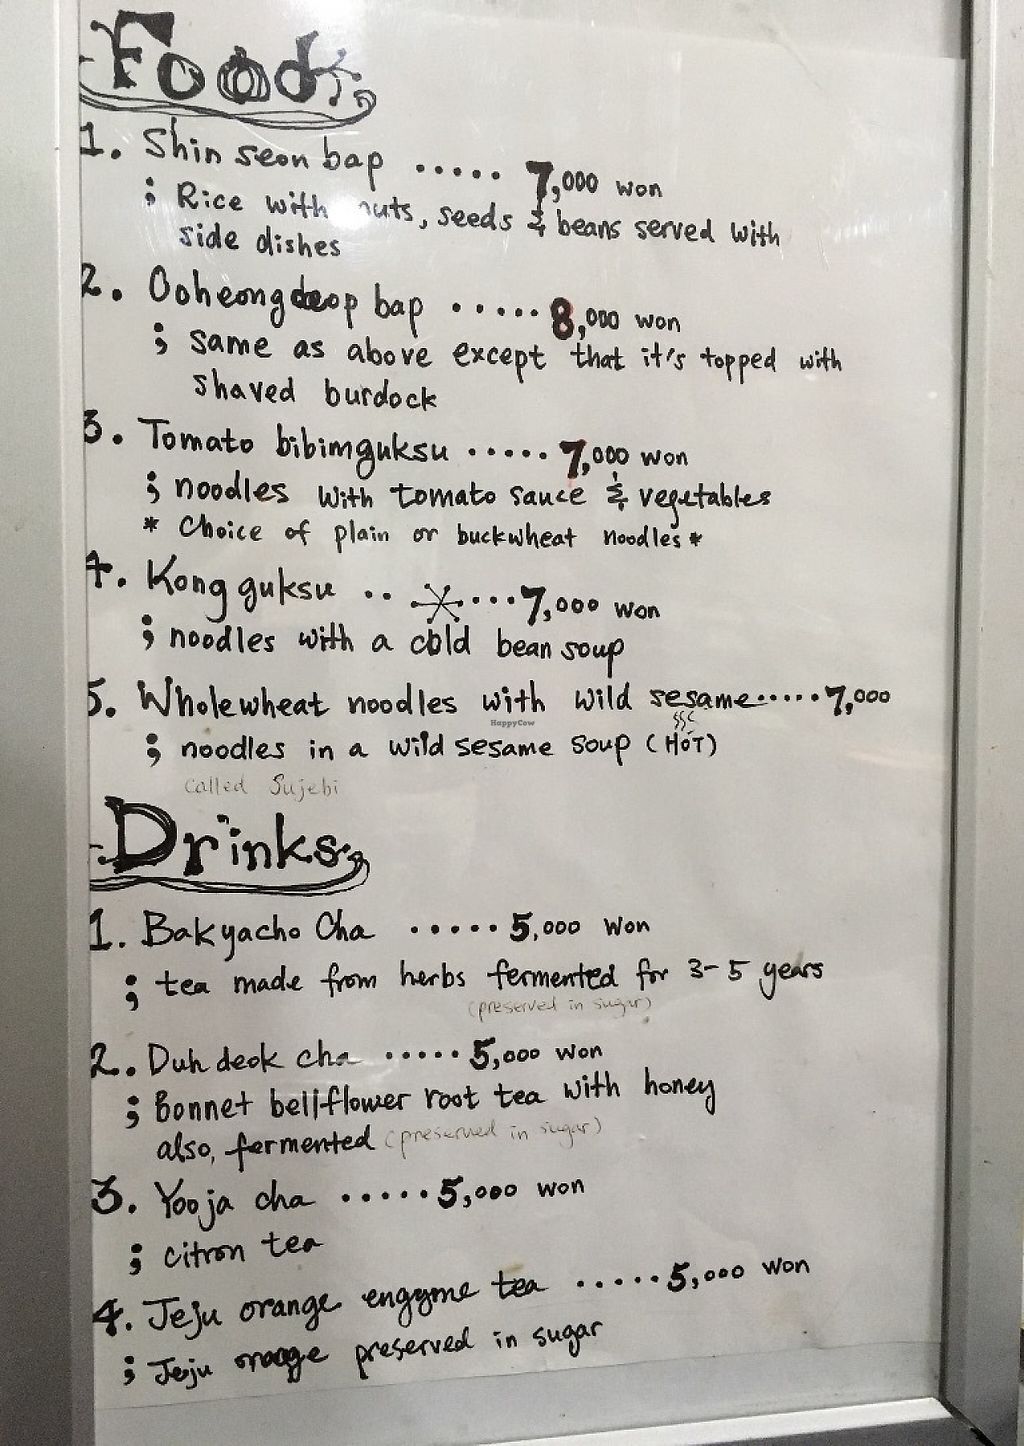 Food
1. Shin seon bap ..... 7,000 won
; Rice with nuts, seeds & beans served with
side dishes
2. Ooheongdeop bap ..... 8,000 won
; same as above except that it's topped with
shaved burdock
3. Tomato bibimguksu ..... 7,000 won
; noodles with tomato sauce & vegetables
* Choice of plain or buckwheat noodles *
4. Kong guksu .. ....7,000 won
; noodles with a cold bean soup
5. Wholewheat noodles with wild sesame.....7,000
HappyCow
; noodles in a wild sesame soup (HOT)
called Sujebi
Drinks
1. Bakyacho Cha ..... 5,000 won
; tea made from herbs fermented for 3-5 years
(preserved in sugar)
2. Duh deok cha ..... 5,000 won
; Bonnet bellflower root tea with honey
also, fermented (preserved in sugar)
3. Yooja cha ..... 5,000 won
; citron tea
4. Jeju orange engyme tea ..... 5,000 won
; Jeju orange preserved in sugar